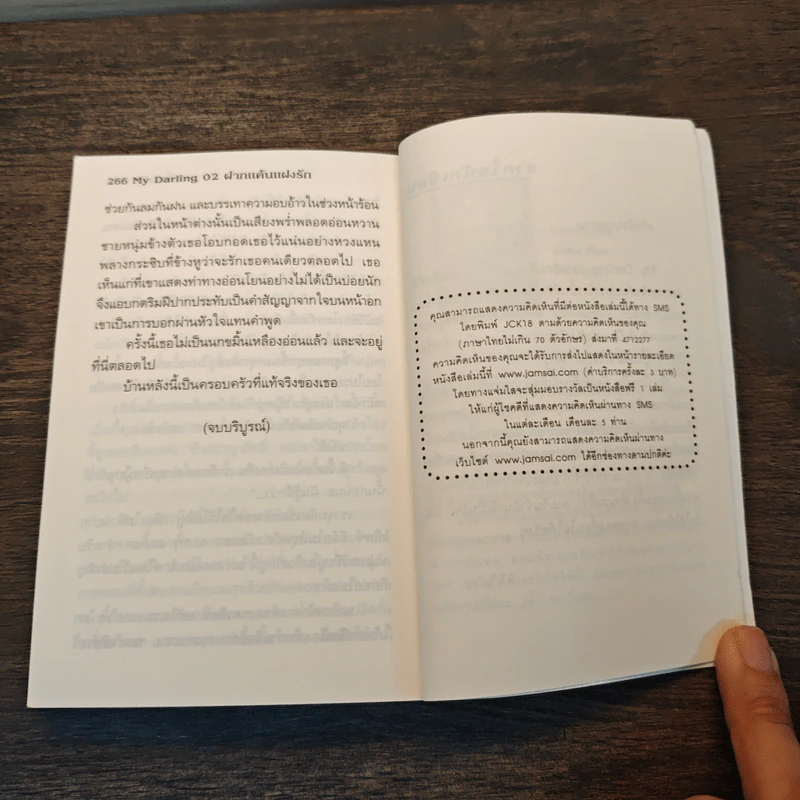 266 My Darling 02 ฝากแค้นแฝงรัก
ช่วยกันลมกันฝน และบรรเทาความอบอ้าวในช่วงหน้าร้อน
ส่วนในหน้าต่างนั้นเป็นเสียงพร่ำพลอดอ่อนหวาน
ชายหนุ่มข้างตัวเธอโอบกอดเธอไว้แน่นอย่างหวงแหน
พลางกระซิบที่ข้างหูว่าจะรักเธอคนเดียวตลอดไป เธอ
เห็นแก่ที่เขาแสดงท่าทางอ่อนโยนอย่างไม่ได้เป็นบ่อยนัก
จึงแอบกดริมฝีปากประทับเป็นคำสัญญาจากใจบนหน้าอก
เขาเป็นการบอกผ่านหัวใจแทนคำพูด
ครั้งนี้เธอไม่เป็นนกขมิ้นเหลืองอ่อนแล้ว และจะอยู่
ที่นี่ตลอดไป
บ้านหลังนี้เป็นครอบครัวที่แท้จริงของเธอ
(จบบริบูรณ์)
คุณสามารถแสดงความคิดเห็นที่มีต่อหนังสือเล่มนี้ได้ทาง SMS
โดยพิมพ์ JCK18 ตามด้วยความคิดเห็นของคุณ
(ภาษาไทยไม่เกิน 70 ตัวอักษร) ส่งมาที่ 4712277
ความคิดเห็นของคุณจะได้รับการส่งไปแสดงในหน้ารายละเอียด
หนังสือเล่มนี้ที่ www.jamsai.com (ค่าบริการครั้งละ 3 บาท)
โดยทางแจ่มใสจะสุ่มมอบรางวัลเป็นหนังสือฟรี 1 เล่ม
ให้แก่ผู้โชคดีที่แสดงความคิดเห็นผ่านทาง SMS
ในแต่ละเดือน เดือนละ 5 ท่าน
นอกจากนี้คุณยังสามารถแสดงความคิดเห็นผ่านทาง
เว็บไซต์ www.jamsai.com ได้อีกช่องทางตามปกติค่ะ